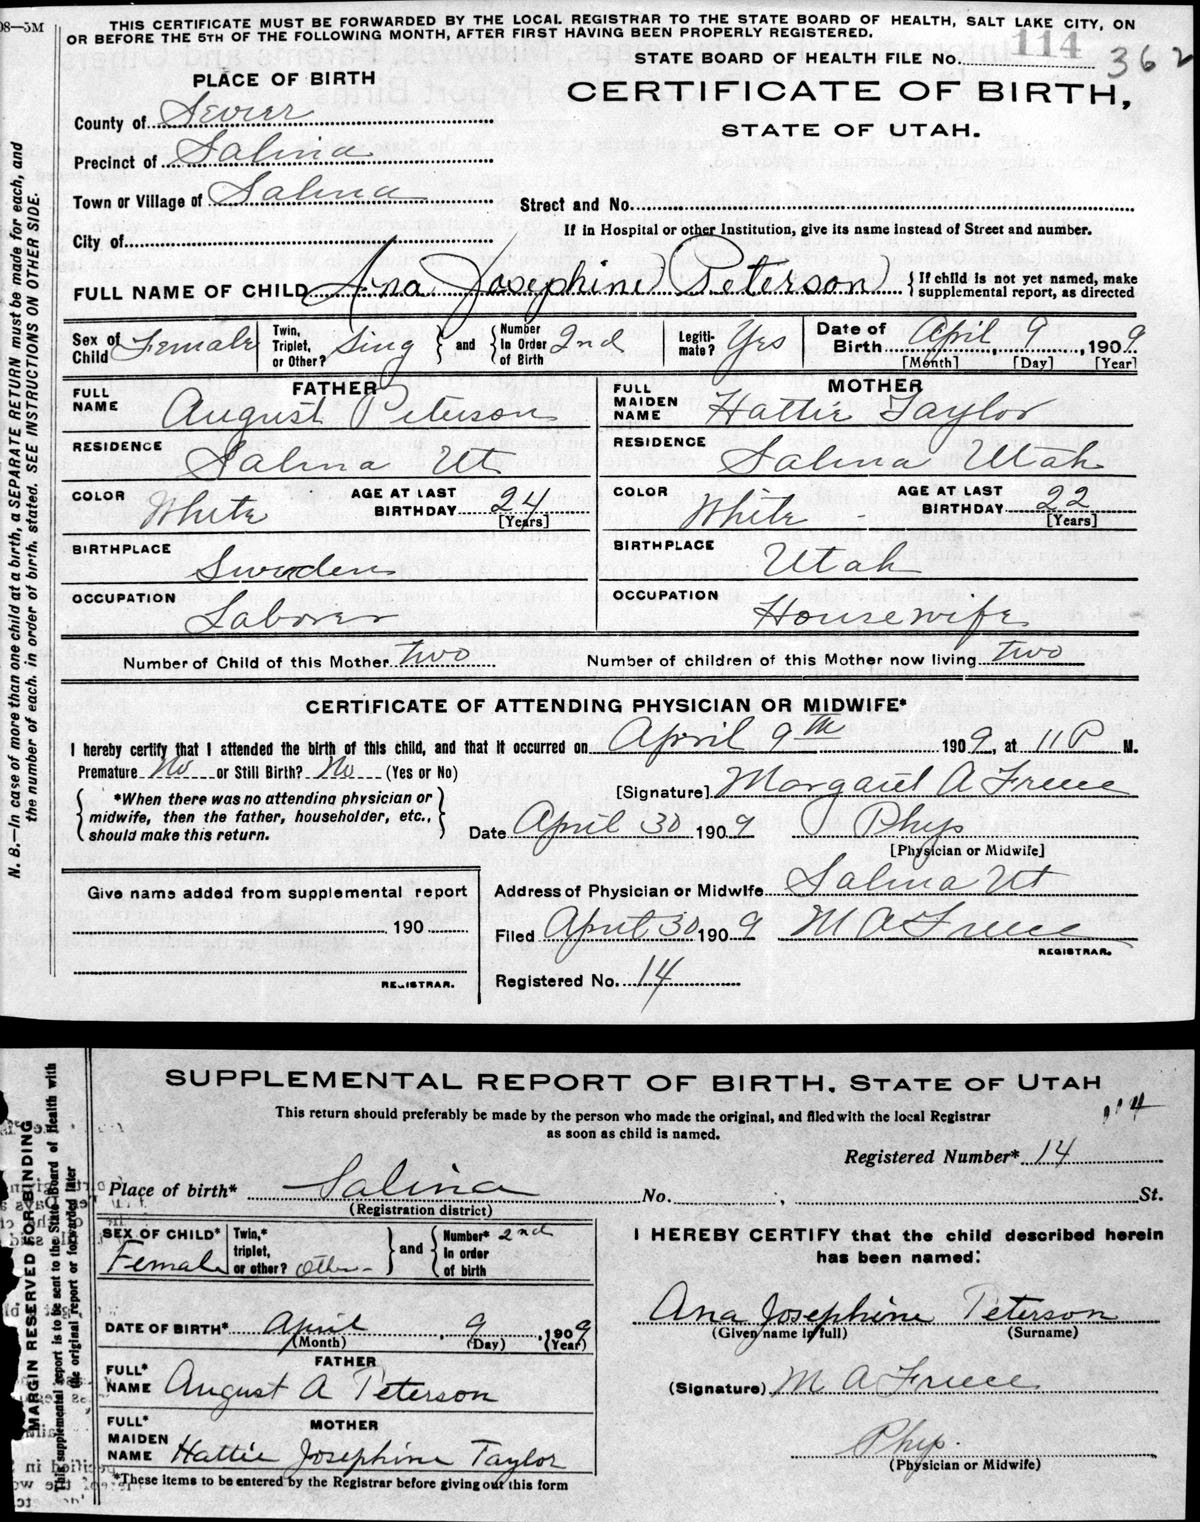 08—5M
THIS CERTIFICATE MUST BE FORWARDED BY THE LOCAL REGISTRAR TO THE STATE BOARD OF HEALTH, SALT LAKE CITY, ON
OR BEFORE THE 5TH OF THE FOLLOWING MONTH, AFTER FIRST HAVING BEEN PROPERLY REGISTERED.
STATE BOARD OF HEALTH FILE No. 114 362
PLACE OF BIRTH
CERTIFICATE OF BIRTH,
STATE OF UTAH.
County of Sevier
Precinct of Salina
Town or Village of Salina
Street and No.
City of
If in Hospital or other Institution, give its name instead of Street and number.
FULL NAME OF CHILD Ana Josephine Peterson { If child is not yet named, make
supplemental report, as directed
Sex of Child Female Twin, Triplet, or Other? Sing } and { Number In Order of Birth 2nd Legiti-mate? Yes Date of Birth April 9, 1909
[Month] [Day] [Year]
FATHER MOTHER
FULL NAME August Peterson FULL MAIDEN NAME Hattie Taylor
RESIDENCE Salina Ut RESIDENCE Salina Utah
COLOR White AGE AT LAST BIRTHDAY 24 [Years] COLOR White - AGE AT LAST BIRTHDAY 22 [Years]
BIRTHPLACE Sweden BIRTHPLACE Utah
OCCUPATION Laborer OCCUPATION Housewife
Number of Child of this Mother two Number of children of this Mother now living two
CERTIFICATE OF ATTENDING PHYSICIAN OR MIDWIFE*
I hereby certify that I attended the birth of this child, and that it occurred on April 9th 1909, at 11 P M.
Premature No or Still Birth? No (Yes or No)
[Signature] Margaret A Freece
{ *When there was no attending physician or
midwife, then the father, householder, etc.,
should make this return. }
Date April 30 1909 Phys
[Physician or Midwife]
Give name added from supplemental report
190
REGISTRAR.
Address of Physician or Midwife Salina Ut
Filed April 30 1909 M A Freece
REGISTRAR.
Registered No. 14
N. B.—In case of more than one child at a birth, a SEPARATE RETURN must be made for each, and
the number of each, in order of birth, stated. SEE INSTRUCTIONS ON OTHER SIDE.
SUPPLEMENTAL REPORT OF BIRTH, STATE OF UTAH
This return should preferably be made by the person who made the original, and filed with the local Registrar
as soon as child is named.
Registered Number* 14
Place of birth* Salina No. St.
(Registration district)
SEX OF CHILD* Female Twin,* triplet, or other? Other- } and { Number* In order of birth 2nd
DATE OF BIRTH* April 9, 1909
(Month) (Day) (Year)
FATHER
FULL* NAME August A Peterson
MOTHER
FULL* MAIDEN NAME Hattie Josephine Taylor
*These items to be entered by the Registrar before giving out this form
I HEREBY CERTIFY that the child described herein
has been named:
Ana Josephine Peterson
(Given name in full) (Surname)
(Signature) M A Freece
Phys.
(Physician or Midwife)
MARGIN RESERVED FOR BINDING
This supplemental report is to be sent to the State Board of Health with
the original report or forwarded later